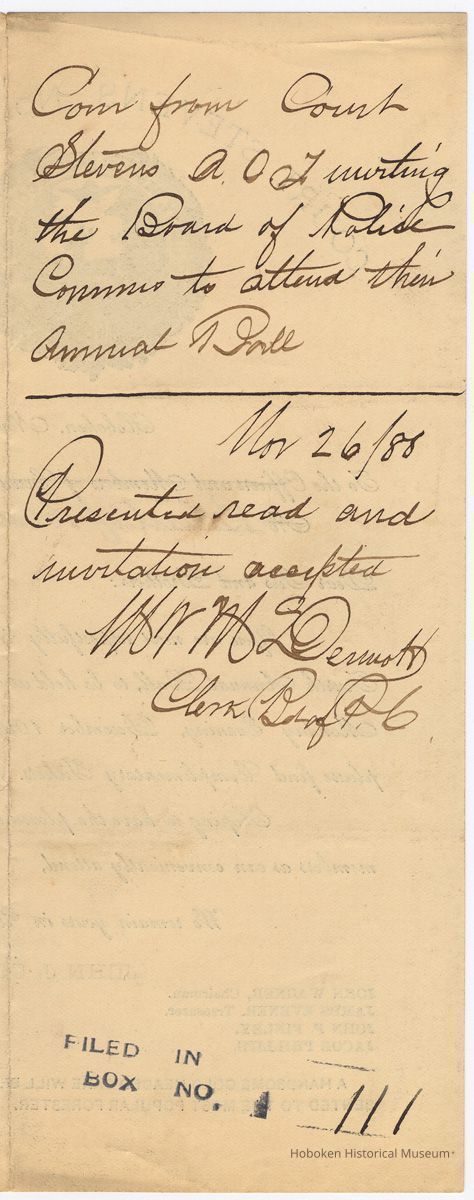 Com from Court
Stevens A. O F inviting
the Board of Police
Commis to attend their
Annual Ball
Nov 26/88
Presented read and
invitation accepted
McDermott
Clerk Bd of P C
FILED IN
BOX NO. 1
111
Hoboken Historical Museum